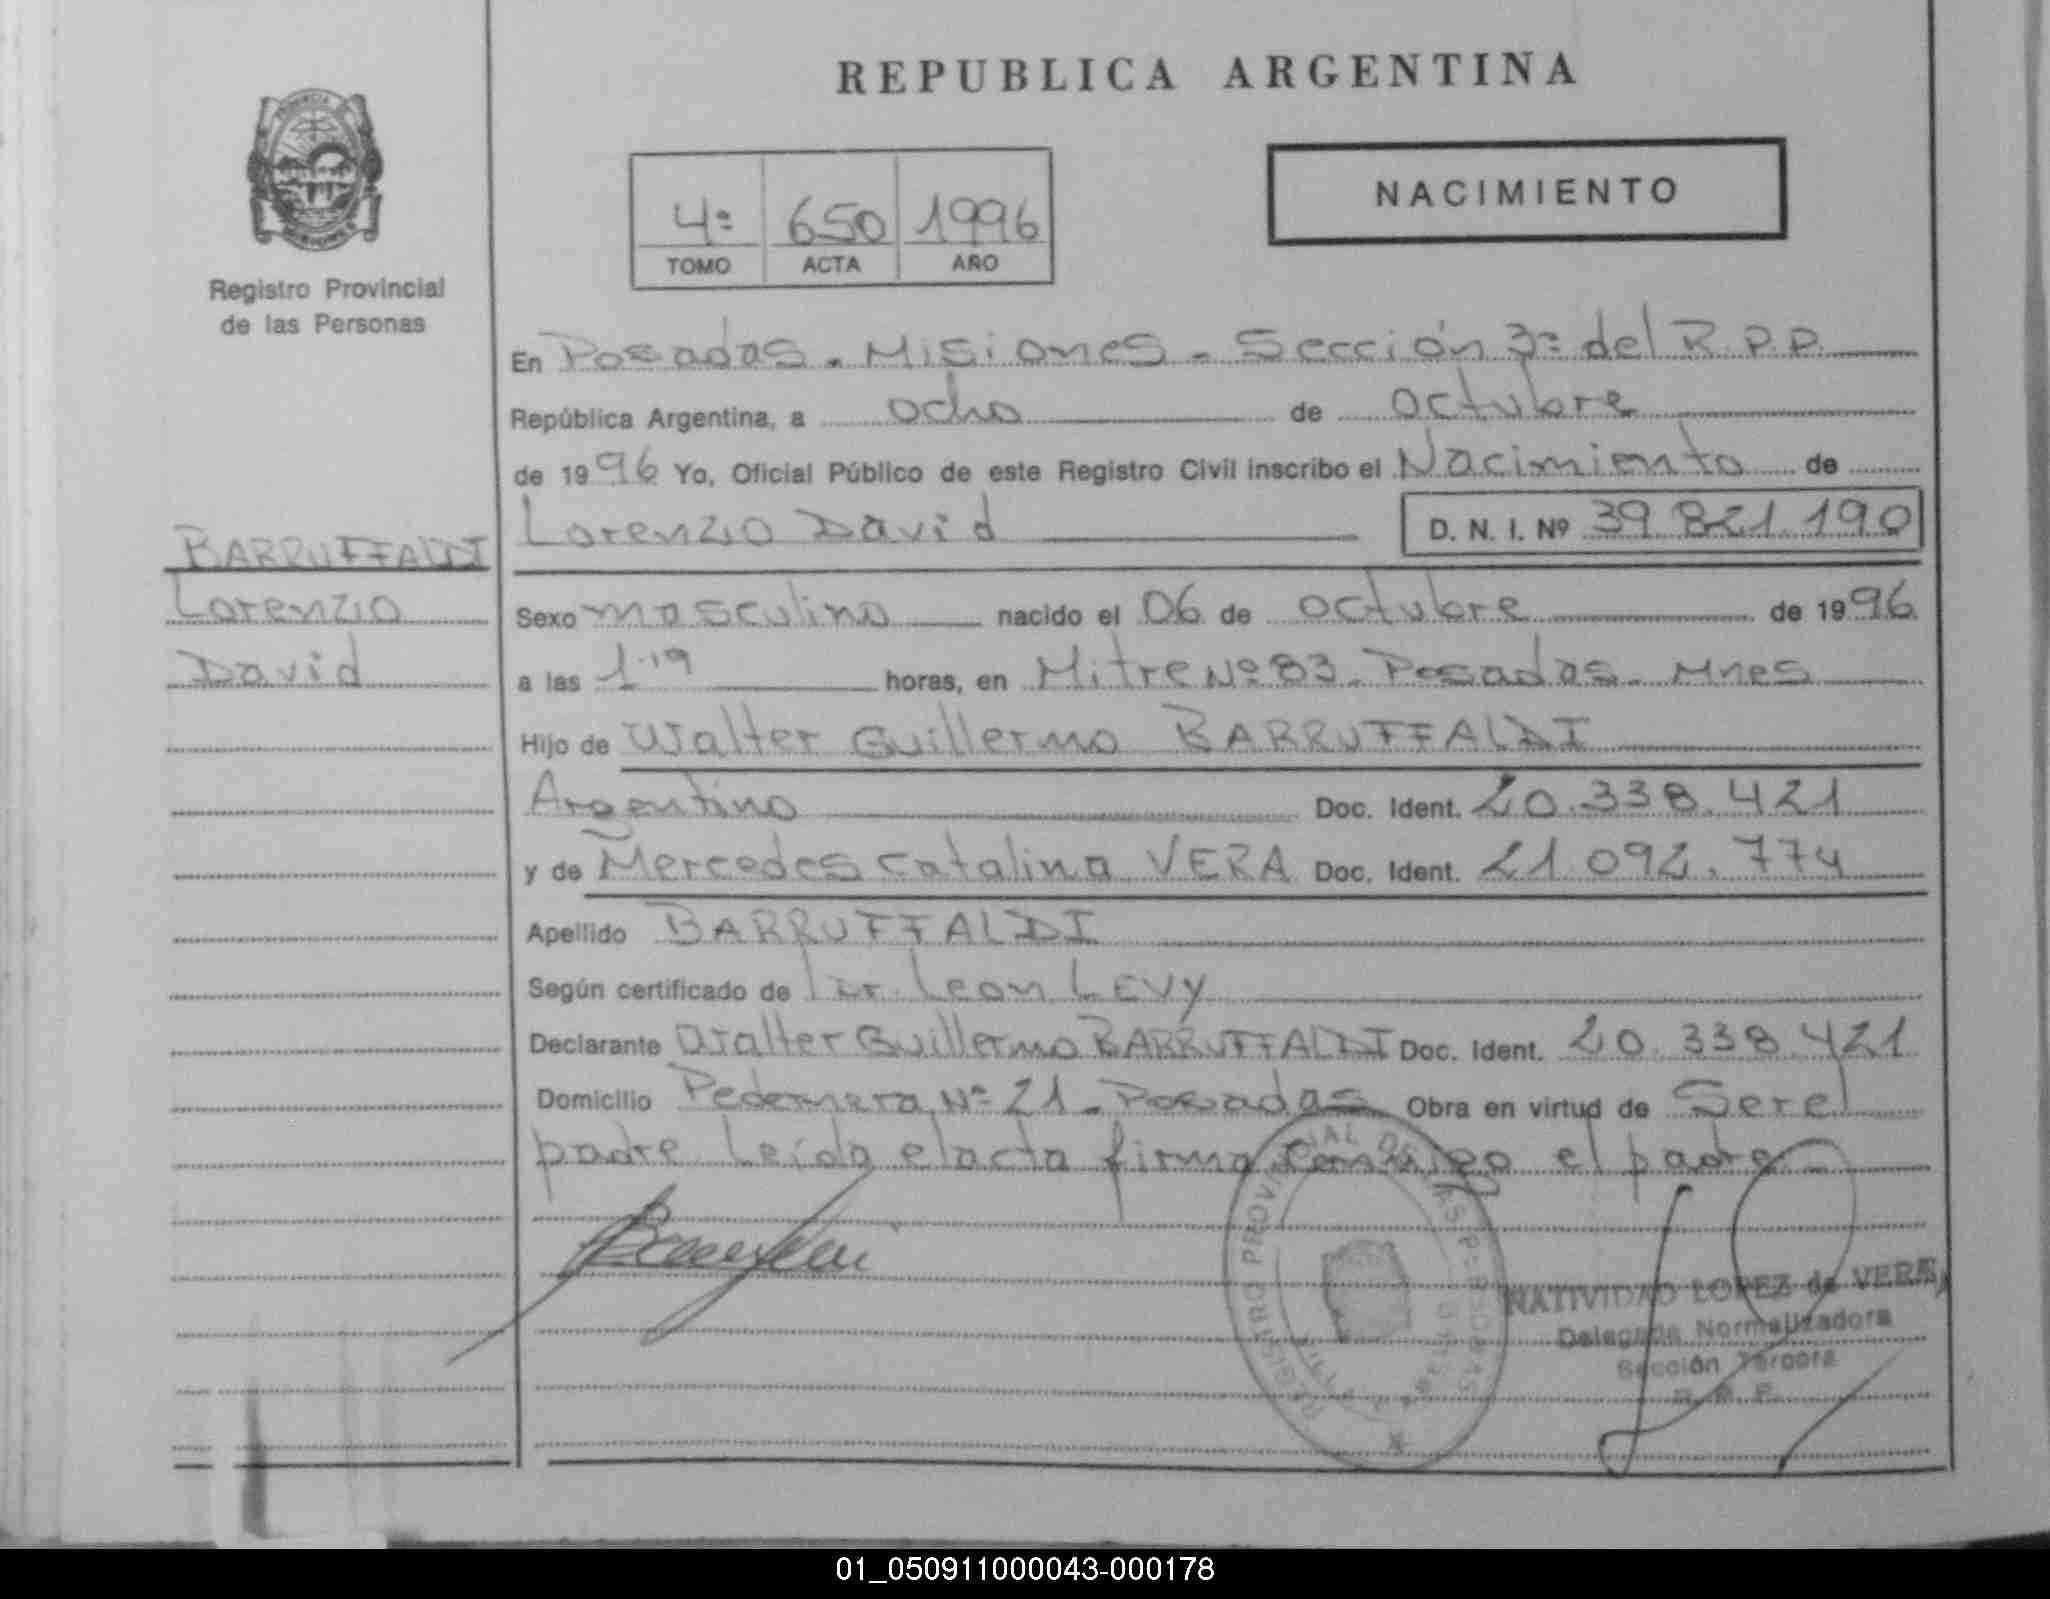 REPUBLICA ARGENTINA
NACIMIENTO
4º 650 1996
TOMO ACTA AÑO
Registro Provincial
de las Personas
En Posadas - Misiones - Sección 3º del R.P.P.
República Argentina, a ocho de octubre
de 1996 Yo, Oficial Público de este Registro Civil inscribo el Nacimiento de
Lorenzo David D. N. I. Nº 39.821.190
BARRUFFALDI
Lorenzo
David
Sexo masculino nacido el 06 de octubre de 1996
a las 1:19 horas, en Mitre Nº 83 - Posadas - Mnes
Hijo de Walter Guillermo BARRUFFALDI
Argentino Doc. Ident. 20.338.421
y de Mercedes Catalina VERA Doc. Ident. 21.092.774
Apellido BARRUFFALDI
Según certificado de Dr. Leon LEVY
Declarante Walter Guillermo BARRUFFALDI Doc. Ident. 20.338.421
Domicilio Pedernera Nº 21 - Posadas Obra en virtud de Ser el
padre Leída el acta firma conmigo el padre
REGISTRO PROVINCIAL DE LAS PERSONAS
NATIVIDAD LOPEZ de VERA
Delegada Normalizadora
Sección Tercera
R. P. P.
01_050911000043-000178